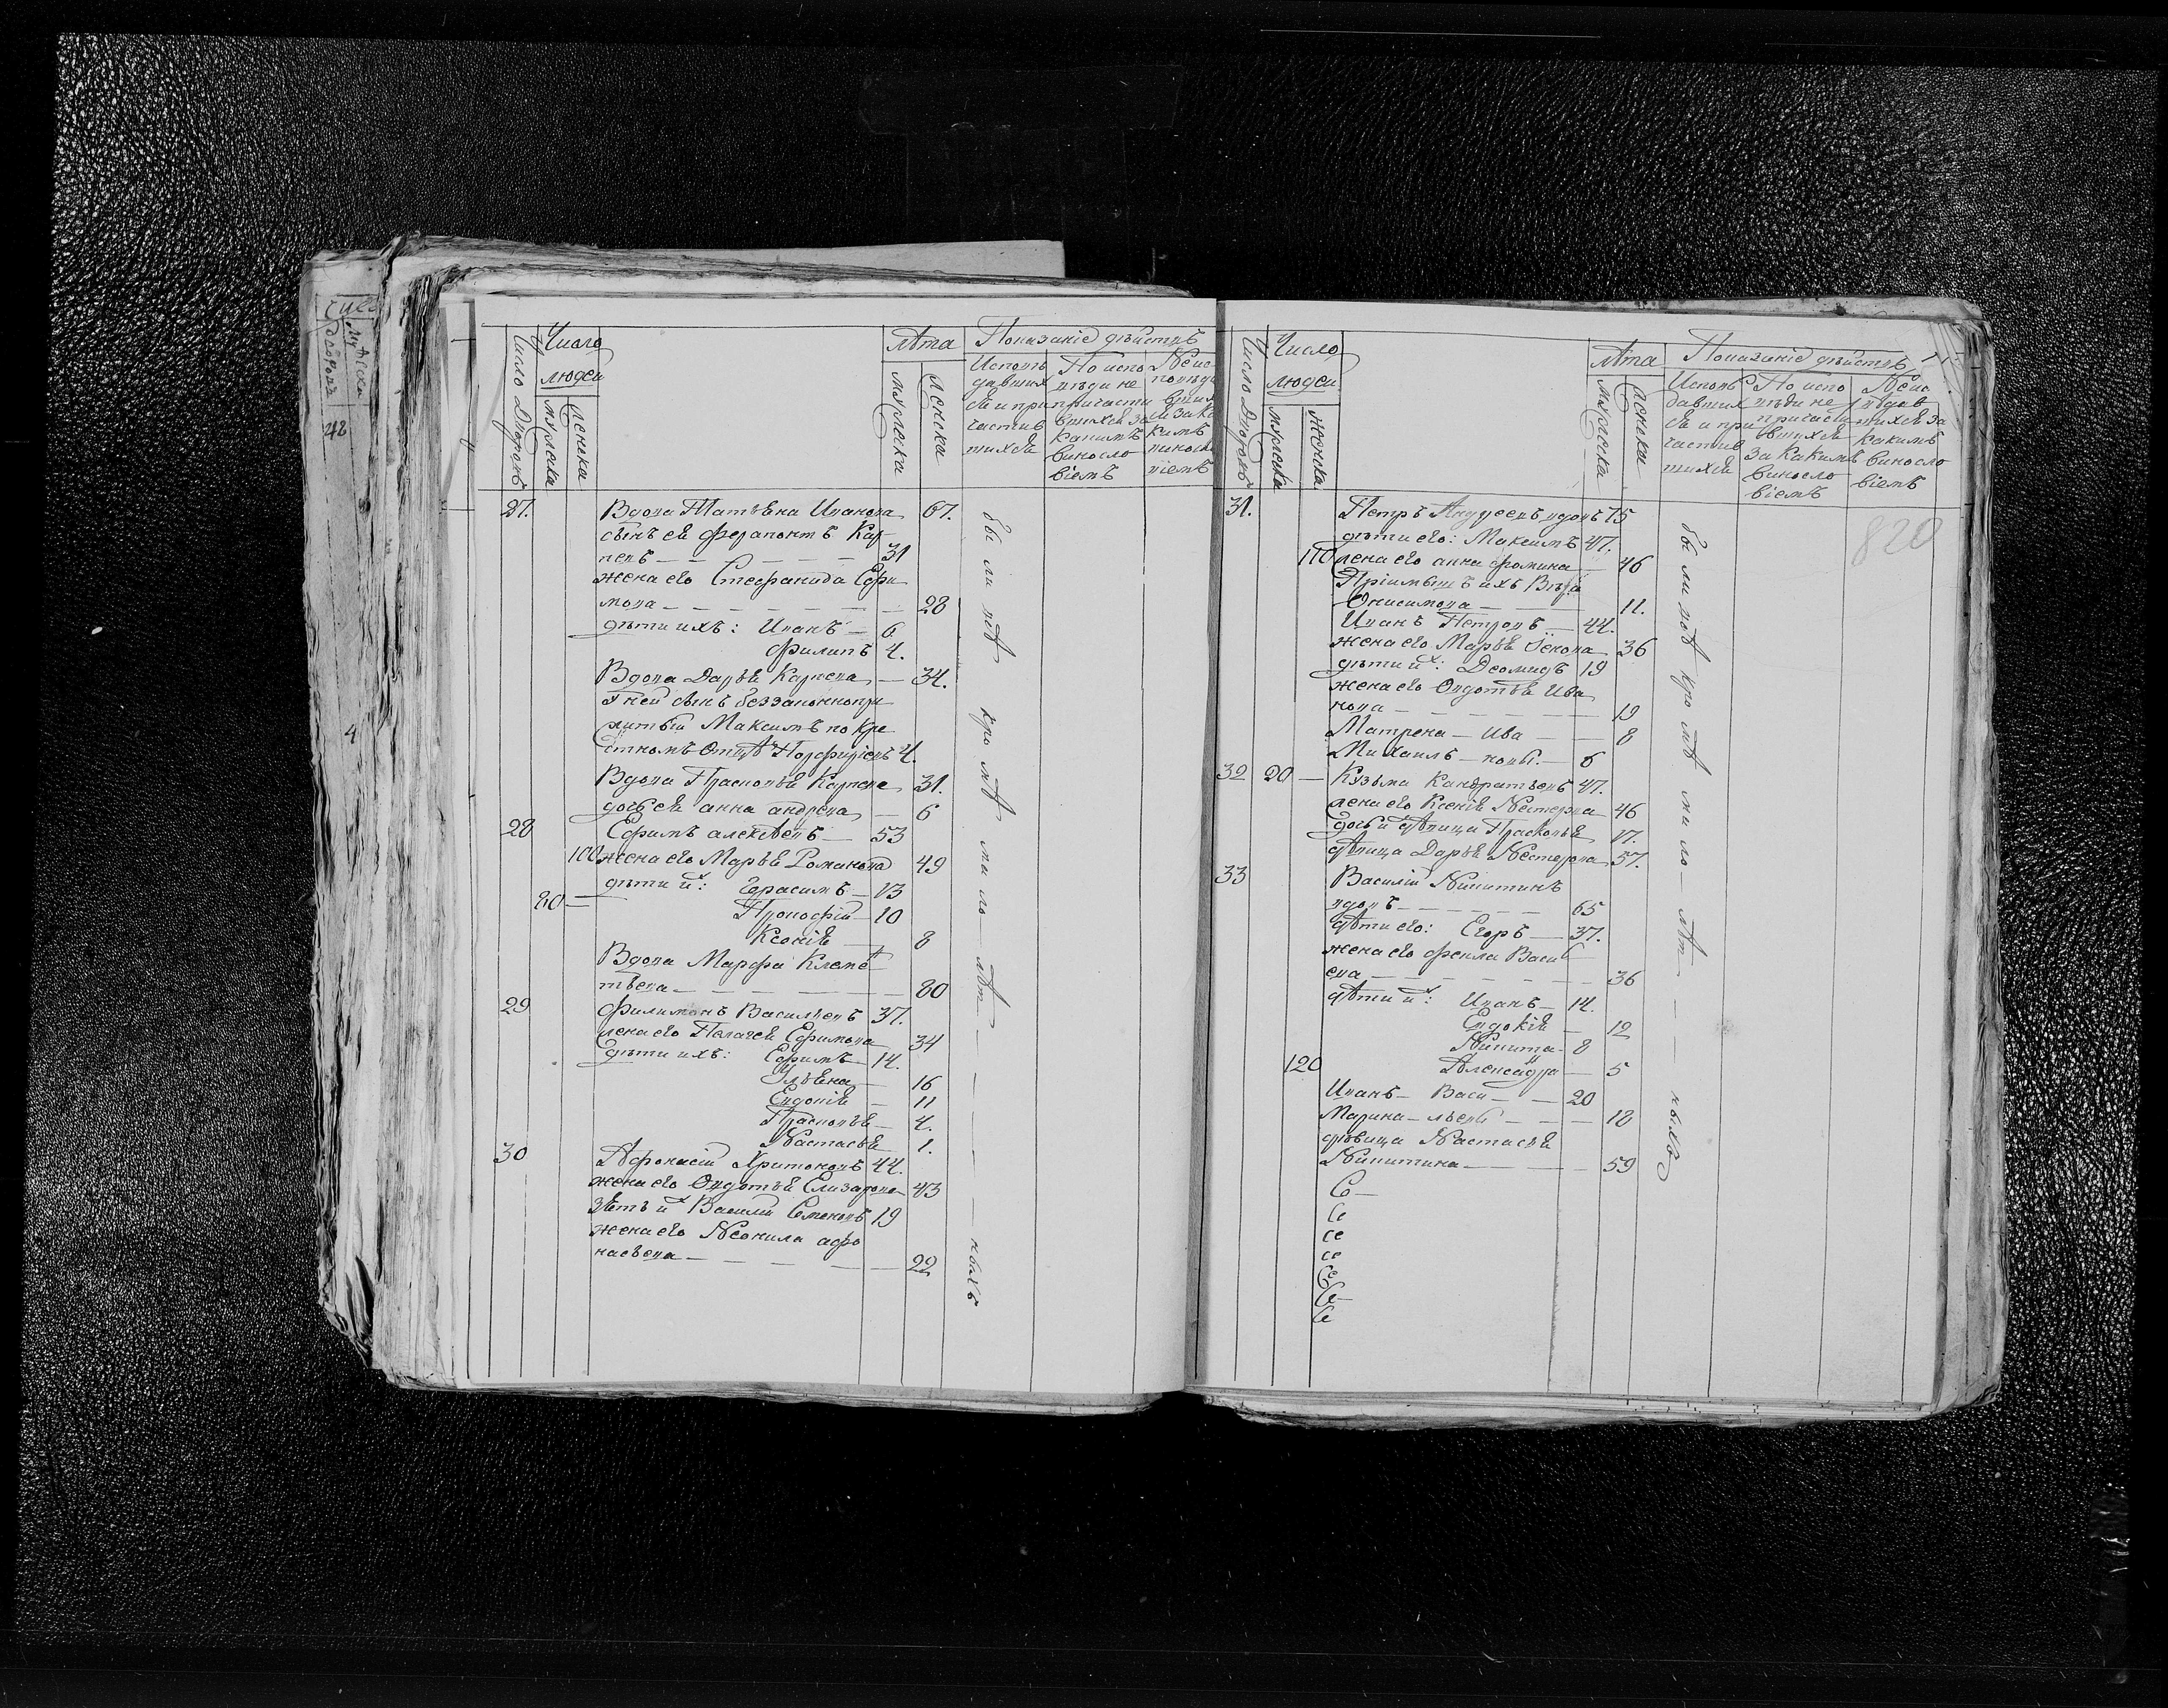 Число Дворовъ
Число
людей
мужеска
женска
лѣта
мужеска
женска
Показаніе дѣйствъ
Исповѣ
давших
ся и при
частив
шихся
По испо
вѣди не
причасти
вшихся за
какимъ
виносло
віемъ
Неис
повѣд
вших
ся за ка
кимъ
винос
віемъ
27. Вдова Татьяна Иванова 67.
сынъ ея Ферапонтъ Кар
певъ 31
жена его Стефанида Ефи
мова 28
дѣти ихъ: Иванъ 6
Филипъ 4.
Вдова Дарья Карпова 34.
у ней сынъ беззаконнопри
житый Максимъ по кре
стномъ отцѣ Порфирьевъ 4.
Вдова Прасковья Карпова 31.
дочь ея анна андреева 6
28 Ефимъ алексѣевъ 53
100 жена его Марья Романова 49
дѣти их: Герасимъ 13
80 Прокофій 10
Ксенія 8
Вдова Марфа Клемен
тьева 80
29 Филимонъ Васильевъ 37.
жена его Пелагея Ефимова 34
дѣти ихъ: Ефимъ 14.
Ульяна 16
Евдокія 11
Прасковья 4.
Настасья 1.
30 Афонасій Харитоновъ 44.
жена его Овдотья Елизарова 43
зять их Василій Семеновъ 19
жена его Неонила афо
насьева 22
были всѣ кромѣ мило лѣт ныхъ
Число Дворовъ
Число
людей
мужеска
женска
лѣта
мужеска
женска
Показаніе дѣйствъ
Исповѣ
давших
ся и при
частив
шихся
По испо
вѣди не
причасти
вшихся
за какимъ
виносло
віемъ
Неис
повѣдав
шихся за
какимъ
виносло
віемъ
820
31. Петръ Андреевъ вдовъ 75
дѣти его: Максимъ 47.
110 жена его анна фомина 46
Пріимышъ ихъ Вѣра
Онисимова 11.
Иванъ Петровъ 44.
жена его Марья Яковова 36
дѣти их: Деомидъ 19
жена его Овдотья Ива
нова 19
Матрена Ива 8
Михаилъ новы 6
32 20 Кузьма Кандратьевъ 47.
жена его Ксенія Нестерова 46
дочь и дѣвица Прасковья 17.
дѣвица Дарья Нестерова 57.
33 Василій Никитинъ
вдовъ 65
дѣти его: Егоръ 37.
жена его фекла Васил
ева 36
дѣти их: Иванъ 14.
Евдокія 12
Никита 8
120 Александра 5
Иванъ Васи 20
Марина льевы 18
дѣвица Настасья
Никитина 59
были всѣ кромѣ мило лѣт ныхъ